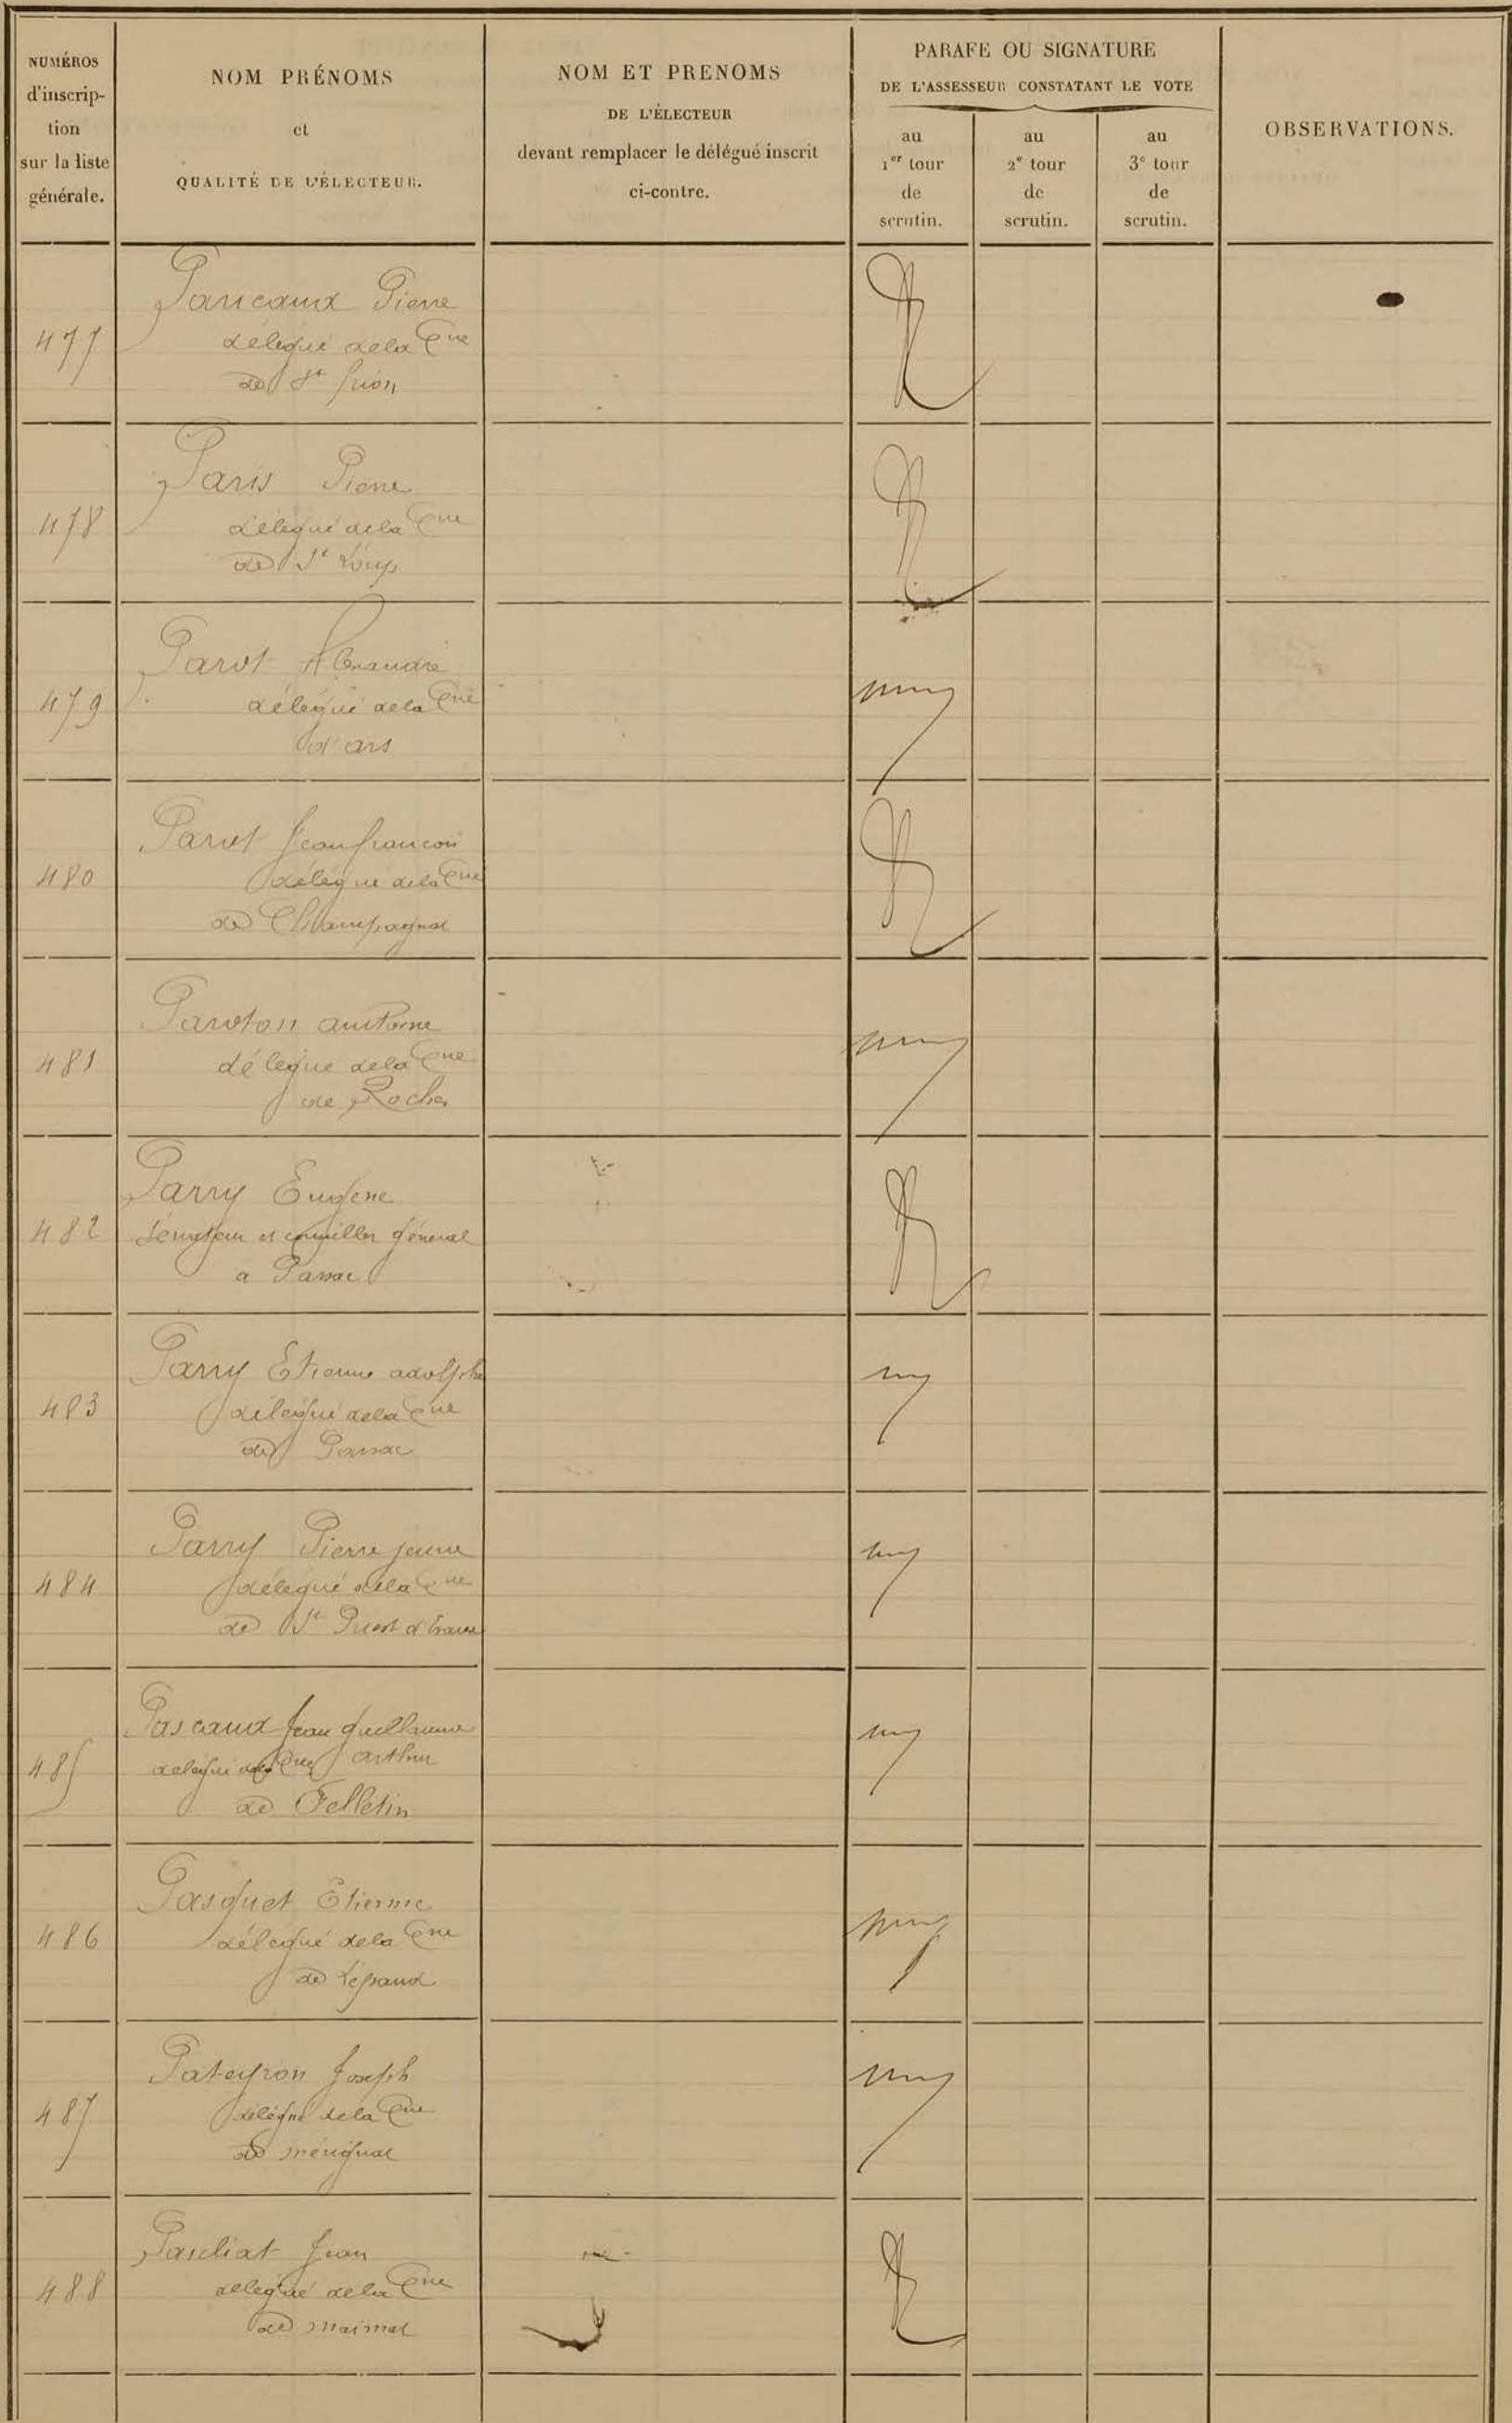 NUMÉROS
d'inscrip-
tion
sur la liste
générale.
NOM PRÉNOMS
et
QUALITÉ DE L'ÉLECTEUR.
NOM ET PRENOMS
DE L'ÉLECTEUR
devant remplacer le délégué inscrit
ci-contre.
PARAFE OU SIGNATURE
DE L'ASSESSEUR CONSTATANT LE VOTE
au
1er tour
de
scrutin.
au
2e tour
de
scrutin.
au
3e tour
de
scrutin.
OBSERVATIONS.
477
Paricaud Pierre
délégué de la Cne
de St Frion
478
Paris Pierre
délégué de la Cne
de St Loup
479
Parot Alexandre
délégué de la Cne
d'ars
480
Parot Jean françois
délégué de la Cne
de Champagnat
481
Paroton antoine
délégué de la Cne
de Roches
482
Parry Eugène
Sénateur et conseiller général
a Parsac
483
Parry Etienne adolphe
délégué de la Cne
de Parsac
484
Parry Pierre jeune
délégué de la Cne
de St Priest
485
Pascaud Jean guillaume
délégué de la Cne arthur
de Felletin
486
Pasquet Etienne
délégué de la Cne
de Lépaud
487
Pateyron Joseph
délégué de la Cne
de mérignat
488
Pauliat Jean
délégué de la Cne
de mainsat